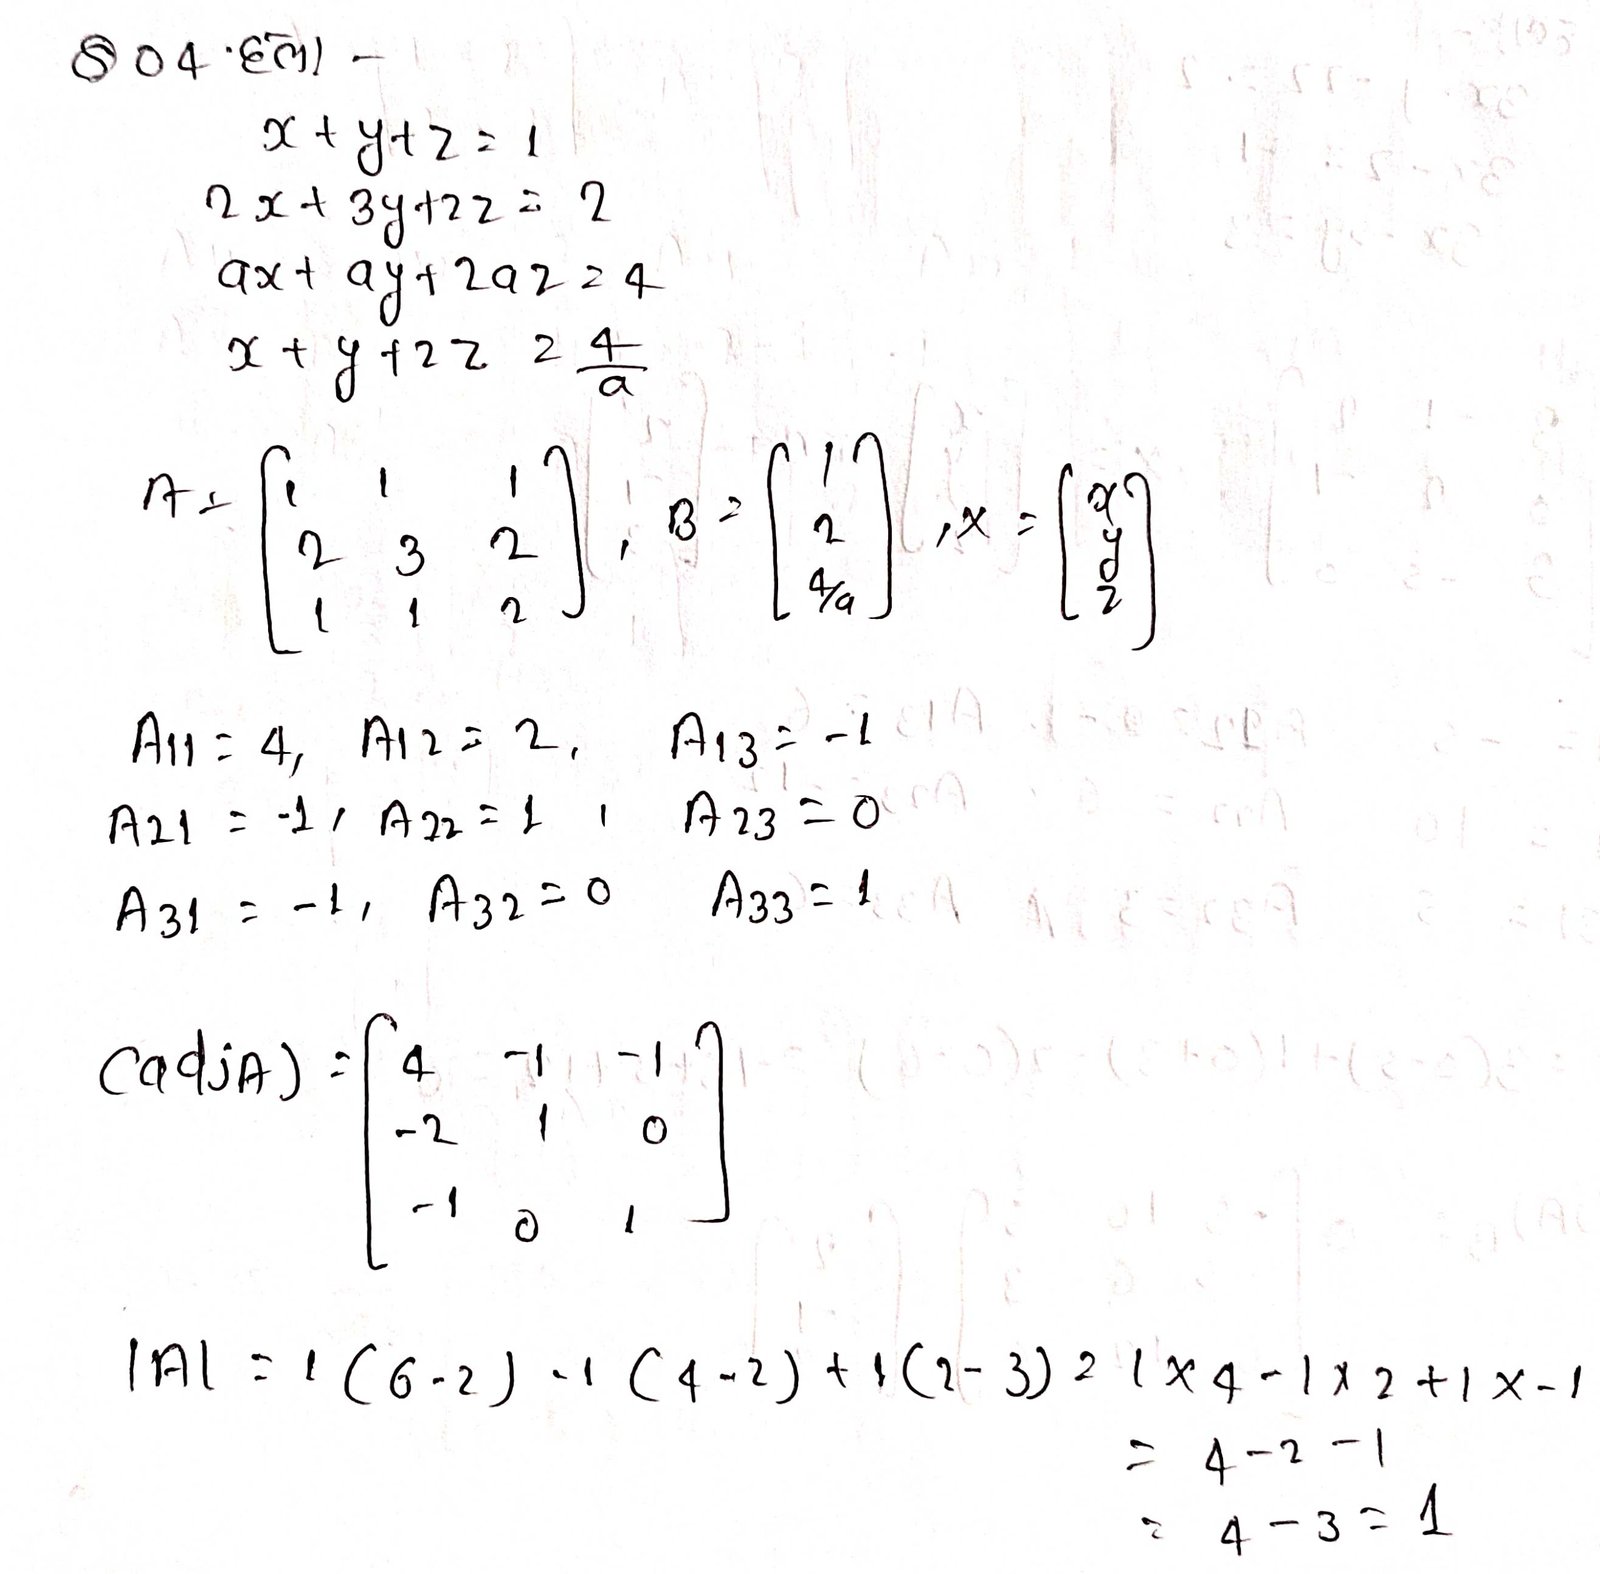 04. हल -
x + y + z = 1
2x + 3y + 2z = 2
ax + ay + 2az = 4
x + y + 2z = 4/a
A = [1 1 1; 2 3 2; 1 1 2], B = [1; 2; 4/a], X = [x; y; z]
A11 = 4, A12 = 2, A13 = -1
A21 = -1, A22 = 1, A23 = 0
A31 = -1, A32 = 0 A33 = 1
(adjA) = [4 -1 -1; -2 1 0; -1 0 1]
|A| = 1(6-2) -1(4-2) + 1(2-3) = 1×4 - 1×2 + 1×-1
= 4-2-1
= 4-3 = 1